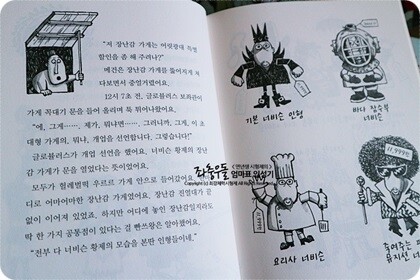 "저 장난감 가게는 어릿광대 복장
할인을 좀 해 주려나?"
메건은 장난감 가게를 뚫어지게 쳐
다보면서 중얼거렸어요.
12시 7초 전, 글로불러스 보좌관이
가게 꼭대기 문을 들어 올리며 툭 튀어나왔어요.
"에, 그게……, 제가, 뭐냐면……, 그러니까, 그게, 이 초
대형 가게의, 뭐냐, 개업을 선언합니다. 그렇습니다!"
글로불러스가 개업 선언을 했어요. 너비슨 황제의 장난
감 가게가 문을 열었다는 뜻이었어요.
모두가 헐레벌떡 우르르 가게 안으로 들어갔어요.
디로 어마어마한 장난감 가게였어요. 장난감 진열대가 끝
없이 이어져 있었죠. 하지만 어디에 놓인 장난감일지라도
딱 한 가지 공통점이 있다는 걸 빤쓰맨은 알아챘어요.
"전부 다 너비슨 황제의 모습을 본딴 인형들이네."
기본 너비슨 인형
바다 잠수부
너비슨
요리사 너비슨
11,999원
죽여주는
뮤지션
좌충우돌
엄마표 일상기